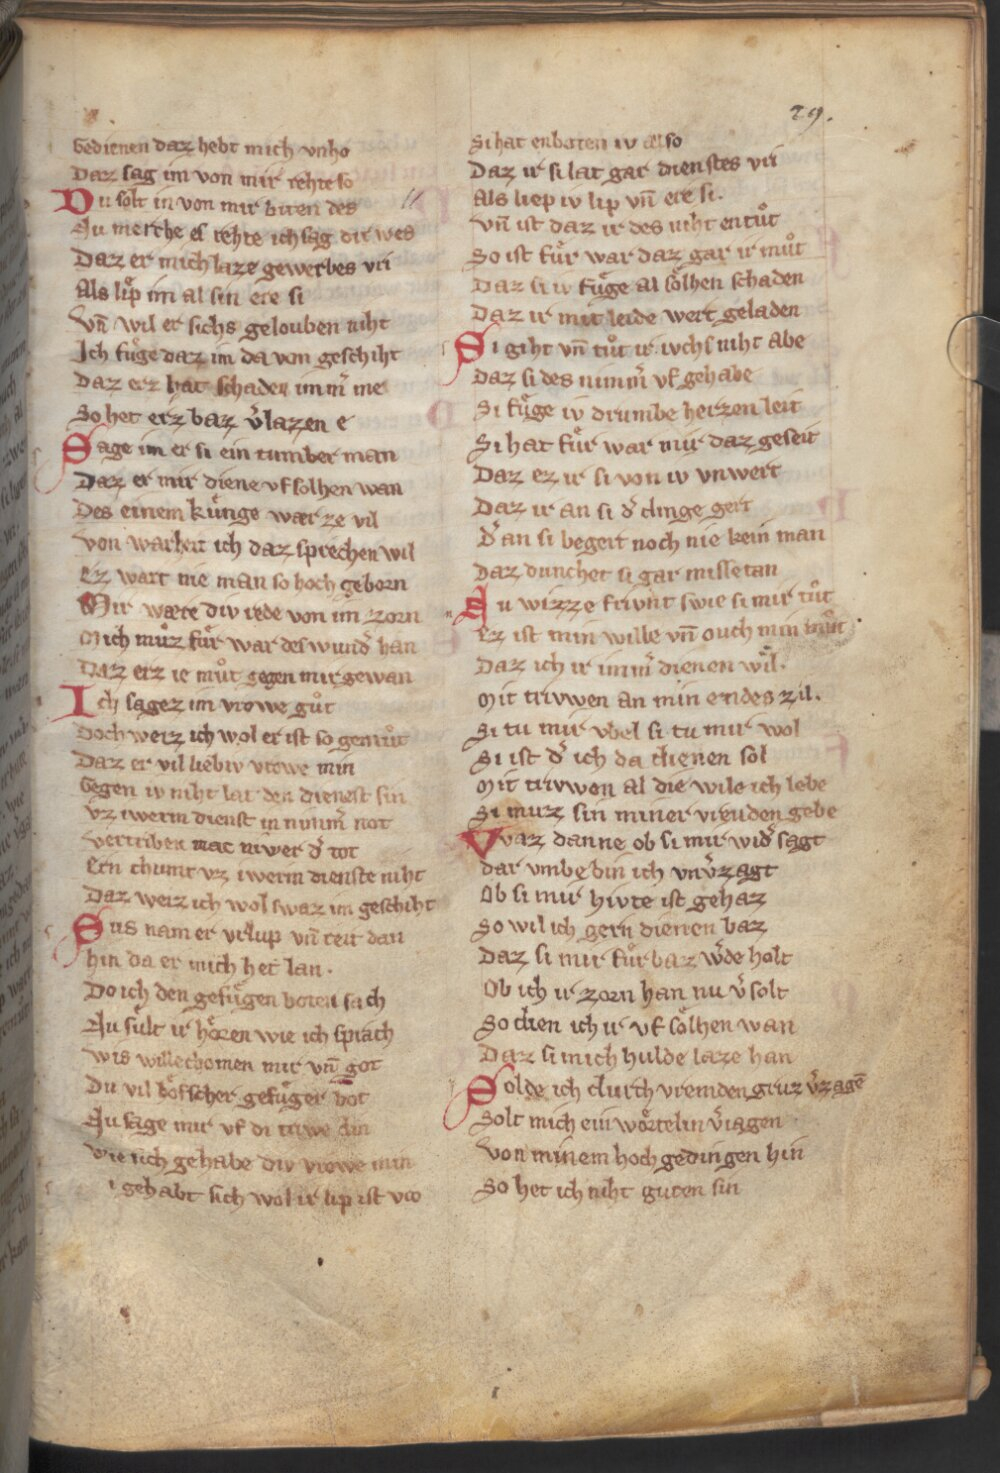 29.
Gedienen daz hebt mich vnho
Daz sag im von mir rehte so
Du solt in von mir biten des
Nu merche es rehte ich sag dir wes
Daz er mich laze gewerbes vri
Als lip im al sin ere si
Vn̄ wil er sichs gelouben niht
Ich fuͤge daz im da von geschiht
Daz erz hat schaden imm̄ me
So het erz baz v̄lazen e
Sage im er si ein tumber man
Daz er mir diene vf solhen wan
Des einem kuͤnge wær ze vil
Von warheit ich daz sprechen wil
Ez wart nie man so hoch geborn
Mir wære div rede von im zorn
Mich muͦz fuͤr war des wund̄ han
Daz erz ie muͦt gegen mir gewan
Ich sagez im vrowe guͦt
Doch weiz ich wol er ist so gemuͦt
Daz er vil liebiv vrowe min
Gegen iv niht lat den dienest sin
Vz iwerm dienst in nimm̄ not
Vertriben mac niwer d̄ tot
Ern chumt vz iwerm dienste niht
Daz weiz ich wol swaz im geschiht
Sus nam er vrlup vn̄ reit dan
Hin da er mich het lan.
Do ich den gefuͤgen boten sach
Nu suͤlt ir hoͤren wie ich sprach
Wis willechomen mir vn̄ got
Du vil hoͤfscher gefuͤger bot
Nu sage mir vf di triwe din
Wie sich gehabe div vrowe min
i gehabt sich wol ir lip ist vro
Si hat enboten iv also
Daz ir si lat gar dienstes vri
Als liep iv lip vn̄ ere si.
Vn̄ ist daz ir des niht entuͦt
So ist fuͤr war daz gar ir muͦt
Daz si iv fuͤge al soͤlhen schaden
Daz ir mit leide wert geladen
Si giht vn̄ tuͦt ir ivchs niht abe
Daz si des nimm̄ vf gehabe
Si fuͤge iv drumbe herzen leit
Si hat fuͤr war mir daz geseit
Daz ez ir si von iv vnwert
Daz ir an si d̄ dinge gert
D̄ an si begert noch nie kein man
Daz dunchet si gar missetan
Nu wizze frivnt swie si mir tuͦt
Ez ist min wille vn̄ ouch min muͦt
Daz ich ir imm̄ dienen wil.
Mit trivwen an min endes zil.
Si tu mir vbel si tu mir wol
Si ist d̄ ich da dienen sol
Mit trivwen al die wile ich lebe
Si muz sin miner vreuden gebe
Waz danne ob si mir wid̄ sagt
Dar vmbe bin ich vnv̄zagt
Ob si mir hivte ist gehaz
So wil ich gern dienen baz
Daz si mir fuͤrbaz w̄de holt
Ob ich ir zorn han nu v̄solt
So dien ich ir vf soͤlhen wan
Daz si mich hulde laze han
Solde ich durch vremden gruz v̄zagē
Solt mich ein woͤrtelin v̄iagen
Von minem hoch gedingen hin
So het ich niht guten sin